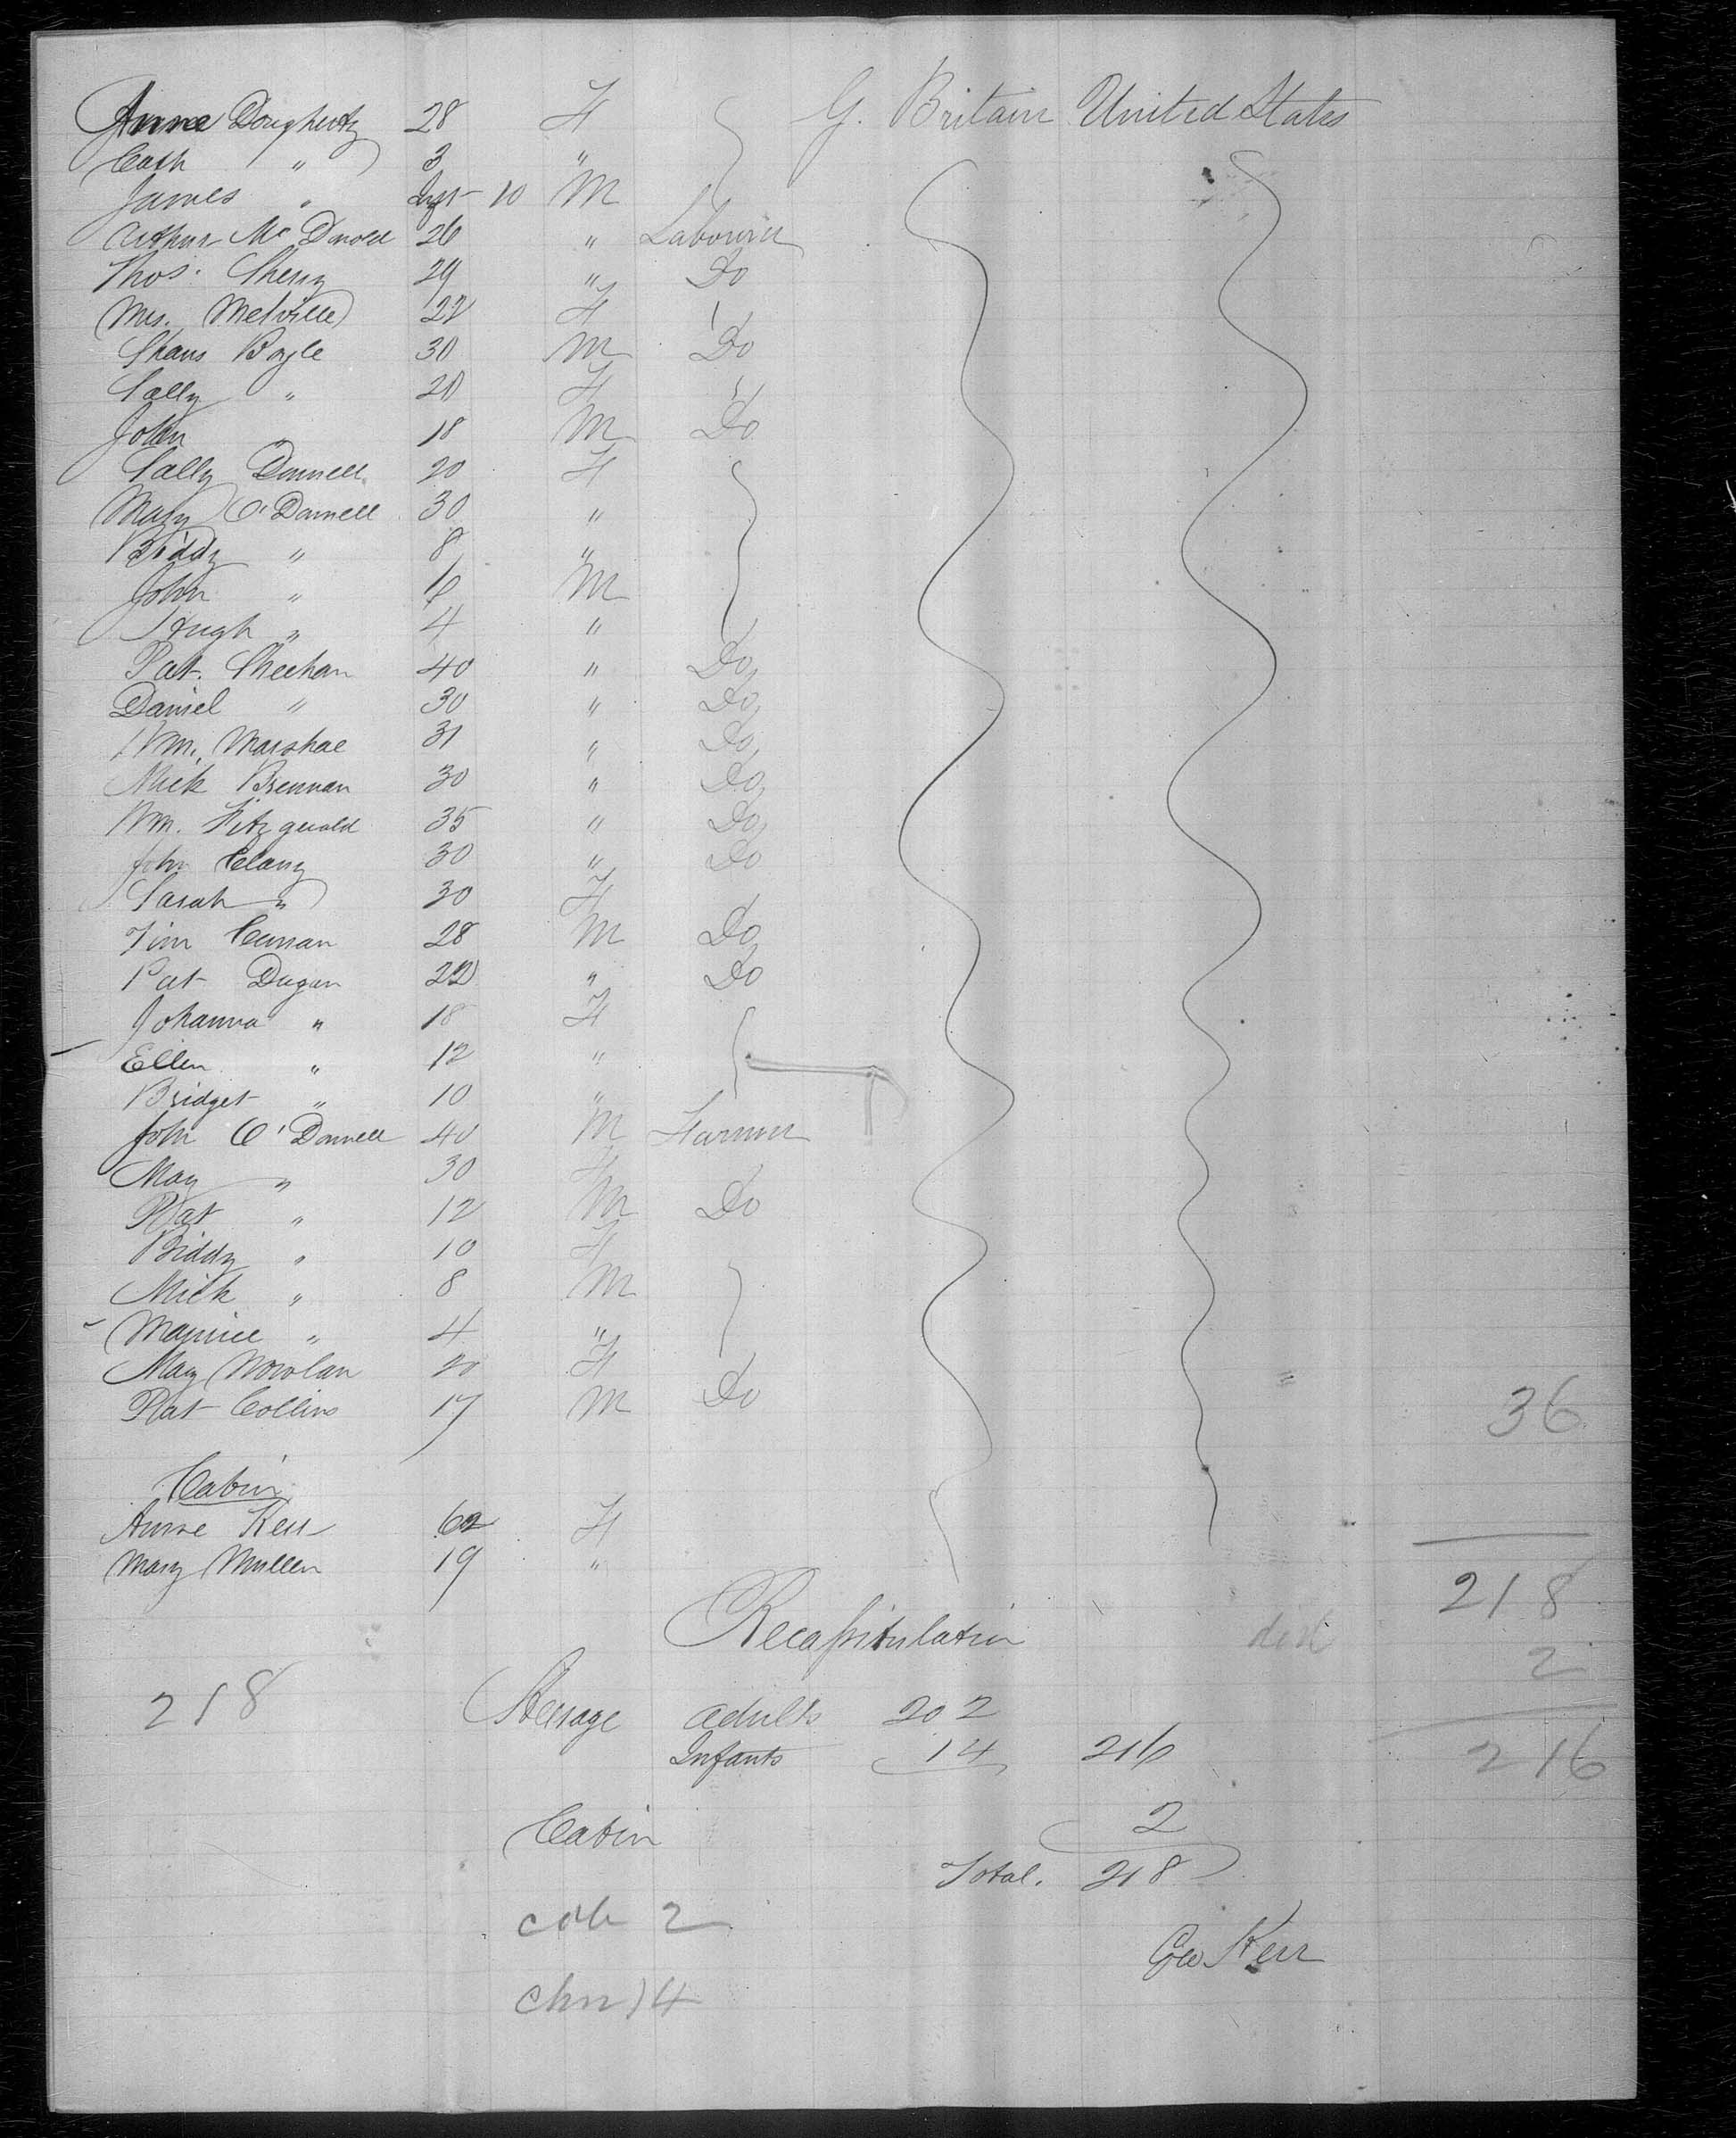 Anne Dougherty 28 F G. Britain United States
Cath " 3 "
James " Inft 10 M
Arthur Mc Donold 26 " Labourer
Thos. Sherry 29 " Do
Mrs. Melville 22 F
Boyle 30 M Do
Sally " 20 F
John " 18 M Do
Sally Donnell 20 F
Mary O'Donnell 30 "
Biddy " 8 "
John " 6 M
Hugh " 4 "
Pat. Sheehan 40 " Do
Daniel " 30 " Do
Wm. Marshal 31 " Do
Mick Brennan 30 " Do
Wm. Fitzgerald 35 " Do
John Clany 30 " Do
Sarah " 30 F
Tim 28 M Do
Pat Dugan 22 " Do
Johanna " 18 F
Ellen " 12 "
Bridget " 10 "
John O'Donnell 40 M Farmer
May " 30 F
Pat " 12 M Do
Biddy " 10 F
Mick " 8 M
Maurice " 4 "
May Nowlan 20 F
Pat Collins 17 M Do 36
Cabin
Anne Kerr 62 F
Mary Mullen 19 "
218
Recapitulation
2
218 Steerage adults 202
Infants 14 216 216
Cabin 2
Total. 218
cab 2
Geo Kerr
chn 14